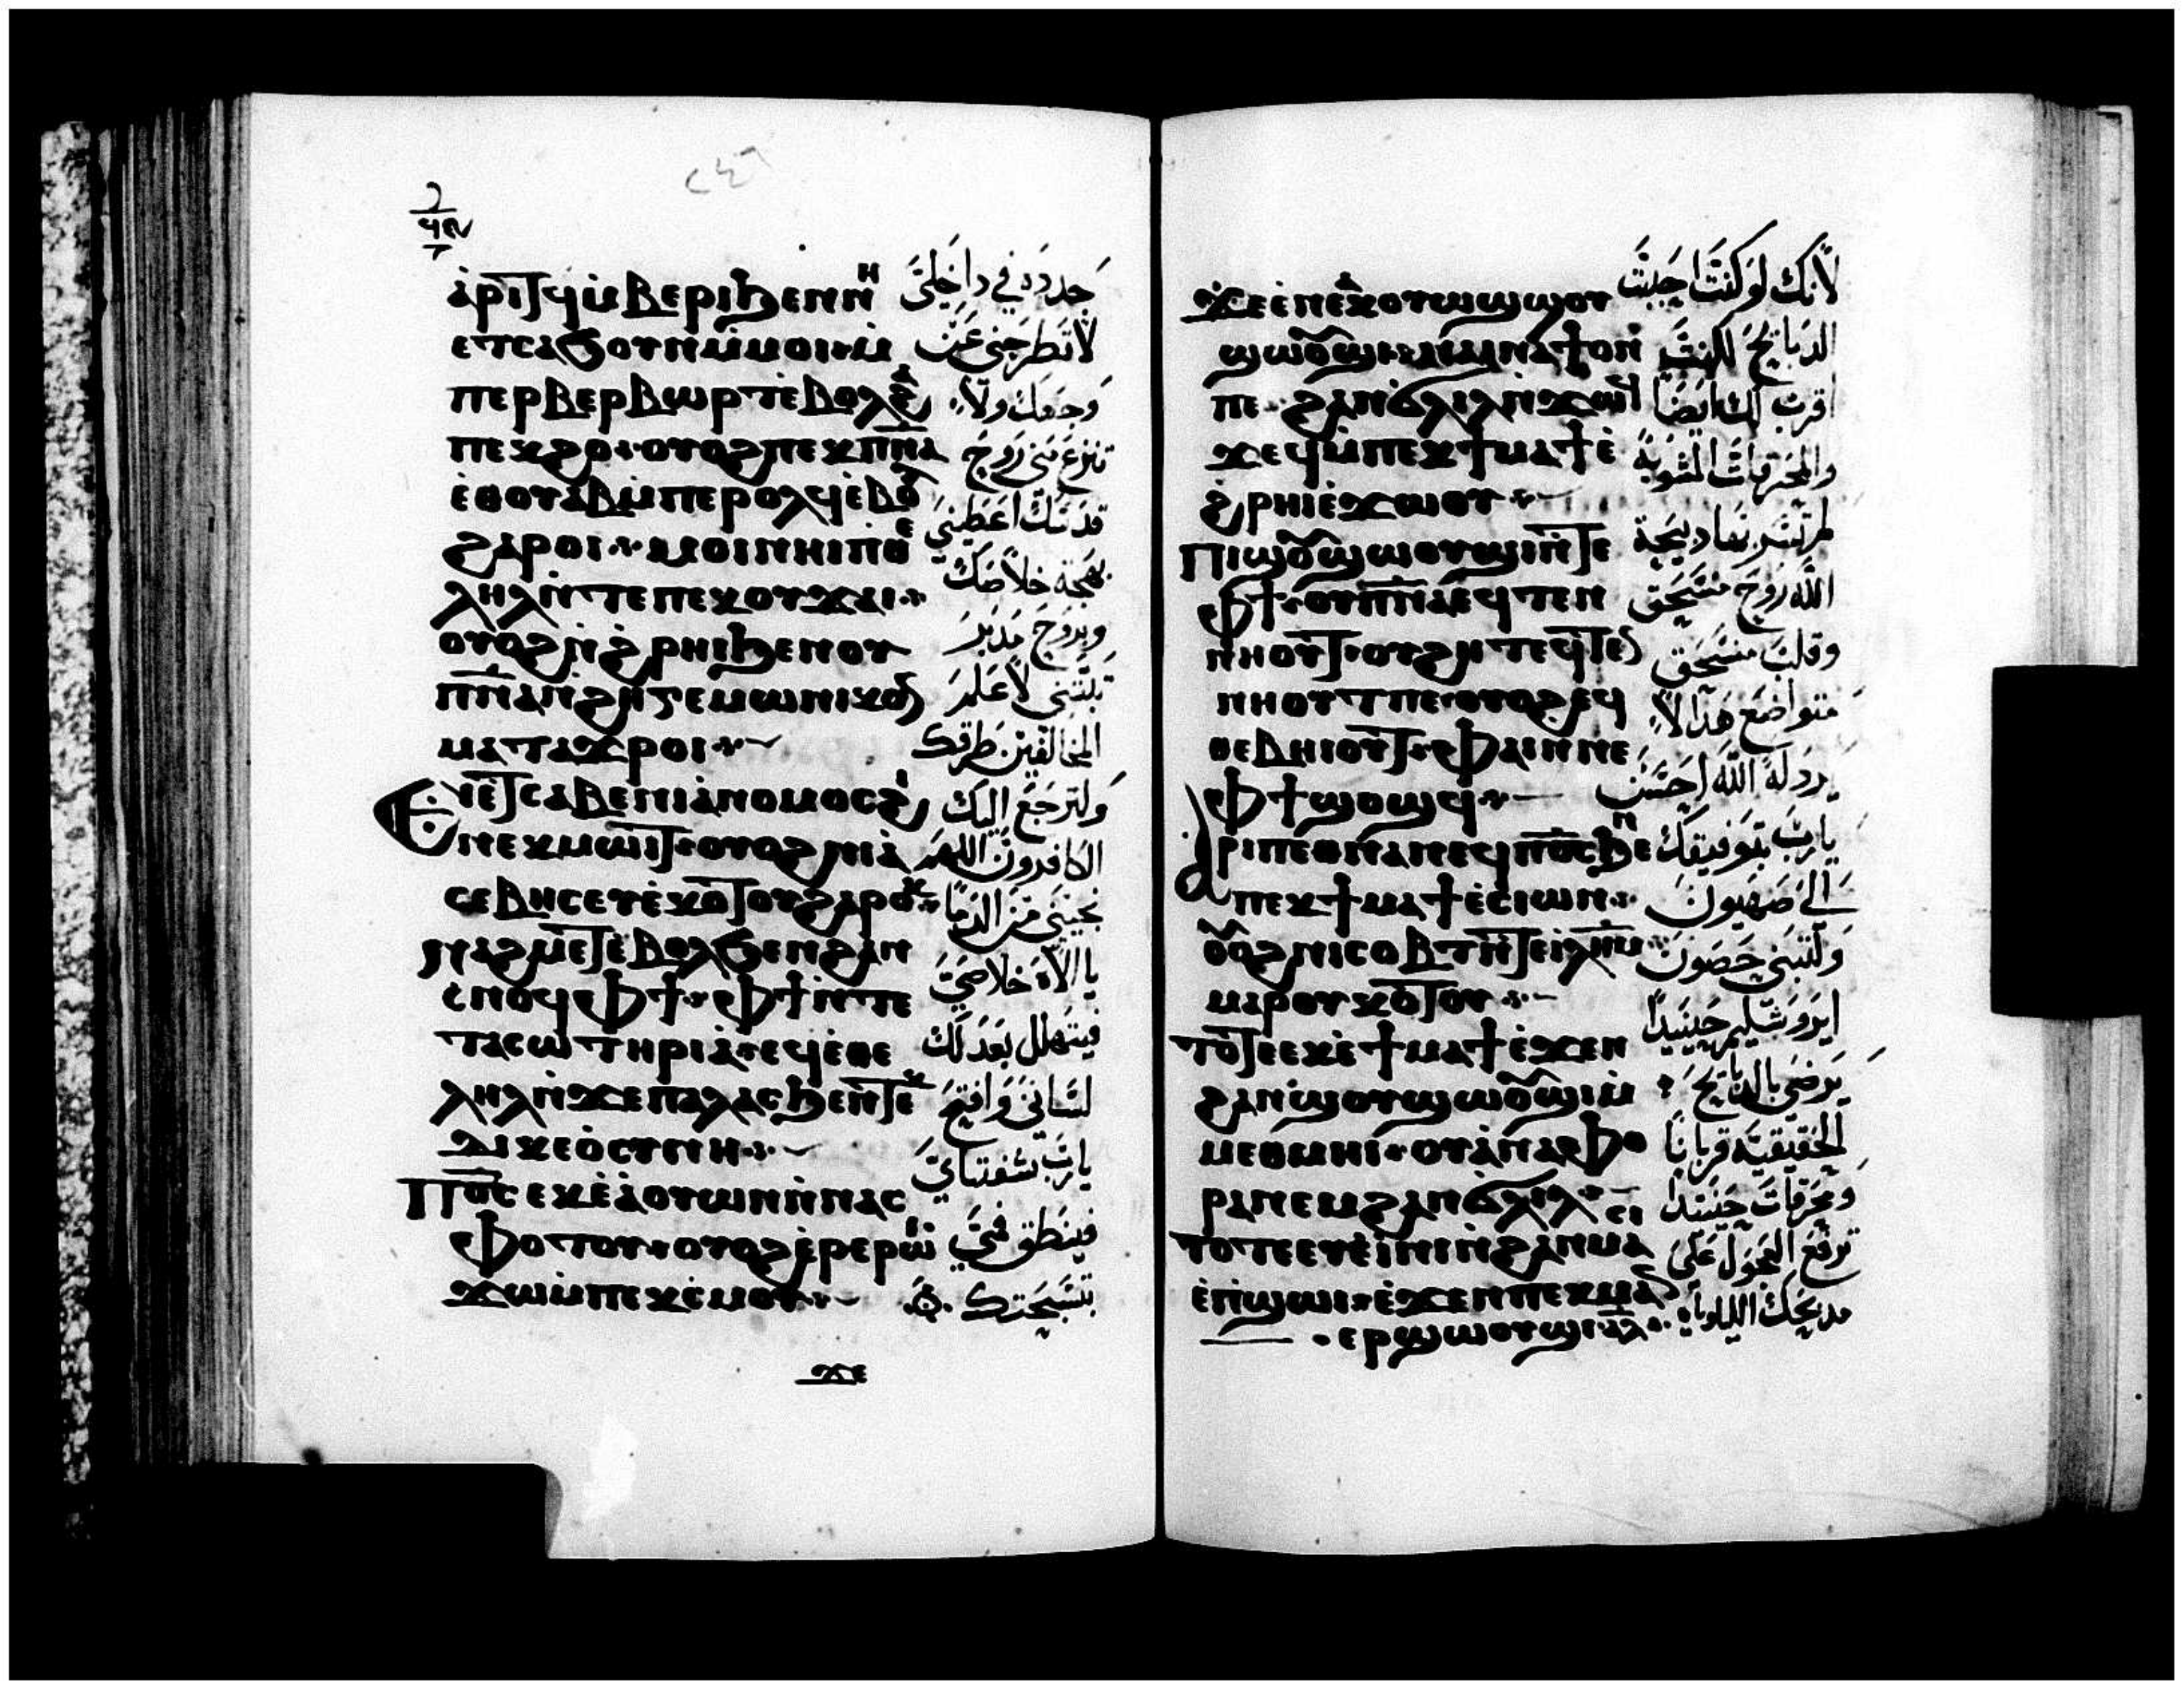 ⲁ̀ⲣⲓⲧϥⲙ̀ⲃⲉⲣⲓϧⲉⲛⲛⲏ
ⲉⲧⲥⲁϧⲟⲩⲛⲙ̀ⲙⲟⲓ ⲙ̀
ⲡⲉⲣⲃⲉⲣⲃⲱⲣⲧⲉ̀ⲃⲟⲗϩⲁ
ⲡⲉⲕϩⲟ ⲟⲩⲟϩⲡⲉⲕⲡⲛⲁ
ⲉ̀ⲑⲟⲩⲁⲃⲙ̀ⲡⲉⲣⲟⲗϥⲉ̀ⲃⲟⲗ
ϩⲁⲣⲟⲓ ⲙⲟⲓⲛⲏⲓⲡⲑⲉ
ⲗⲏⲗⲛ̀ⲧⲉⲡⲉⲕⲟⲩϫⲁⲓ
ⲟⲩⲟϩⲛ̀ϩⲣⲏⲓϧⲉⲛⲟⲩ
ⲡⲛⲁⲛ̀ϩⲏⲅⲉⲙⲱⲛⲓⲕⲟⲛ
ⲙⲁⲧⲁϫⲣⲟⲓ
ⲉⲓⲉ̀ⲧⲥⲁⲃⲉⲛⲓⲁ̀ⲛⲟⲙⲟⲥϩⲓ
ⲛⲉⲕⲙⲱⲓⲧ ⲟⲩⲟϩⲛⲓⲁ̀
ⲥⲉⲃⲏⲥⲉⲩⲉ̀ⲕⲟⲧⲟⲩϩⲁⲣⲟⲕ
ⲛⲁϩⲙⲉⲧⲉ̀ⲃⲟⲗϧⲉⲛϩⲁⲛ
ⲥⲛⲟϥⲫϯ ⲫϯⲛ̀ⲧⲉ
ⲧⲁⲥⲱⲧⲏⲣⲓⲁ̀ ⲉϥⲉ̀ⲑⲉ
ⲗⲏⲗⲛ̀ϫⲉⲡⲁⲗⲁⲥϧⲉⲛⲧⲉⲕ
ⲇⲓⲕⲉⲟ̀ⲥⲩⲛⲏ
ⲡⲟⲥ ⲉⲕⲉ̀ⲁ̀ⲟⲩⲱⲛⲛ̀ⲛⲁⲥ
ⲫⲟⲧⲟⲩ ⲟⲩⲟϩⲉ̀ⲣⲉⲣⲱⲓ
ϫⲱⲙ̀ⲡⲉⲕⲥ̀ⲙⲟⲩ
ϫⲉ
جدده في داخلي
لا تطرحني عن
وجهك ولا
تنزع مني روح
قدسك اعطيني
بهجة خلاصك
وبروح مدبر
ثبتني لاعلم
المخالفين طرقك
ولترجع اليك
الكافرون اللهم
نجيني من الدما
يا الاه خلاصي
فيتهلل بعدلك
لساني وافتح
يارب شفتاي
فينطق فمي
بتسبحتك
ϫⲉⲉ̀ⲛⲉⲁⲕⲟⲩⲱϣϣⲟⲩ
ϣⲱⲟⲩϣⲓ ⲛⲁⲓⲛⲁϯⲟⲛ
ⲡⲉ ϩⲁⲛϭⲗⲓⲗⲛ̀ϫⲱⲓⲗ
ϫⲉϥⲙ̀ⲡⲉⲕϯⲙⲁϯⲉ̀
ϩⲣⲏⲓⲉ̀ϫⲱⲟⲩ
ⲡⲓϣⲟⲩϣⲱⲟⲩϣⲓⲛ̀ⲧⲉ
ⲫϯ ⲟⲩⲡⲛⲁⲉϥⲧⲉⲛ
ⲛⲏⲟⲩⲧ ⲟⲩϩⲏⲧⲉϥⲧⲉⲛ
ⲛⲏⲟⲩⲧⲡⲉ ⲟⲩⲟϩⲉϥ
ⲑⲉⲃⲏⲓⲟⲩⲧ ⲫⲁⲓⲛⲛⲉ
ⲫϯϣⲟϣϥ
ⲁⲣⲓⲡⲉⲑⲛⲁⲛⲉϥⲡⲟⲥϧⲉⲛ
ⲡⲉⲕϯⲙⲁϯⲉ̀ⲥⲓⲱⲛ
ⲟⲩⲟϩⲛⲓⲥⲟⲃⲧⲛ̀ⲧⲉⲓⲗⲏⲙ
ⲙⲁⲣⲟⲩⲕⲟⲧⲟⲩ
ⲧⲟⲧⲉⲉⲕⲉ̀ϯⲙⲁϯⲉ̀ϫⲉⲛ
ϩⲁⲛϣⲟⲩϣⲱⲟⲩϣⲓⲙ̀
ⲙⲉⲑⲙⲏⲓ ⲟⲩⲁ̀ⲛⲁⲫⲟ
ⲣⲁⲛⲉⲙϩⲁⲛϭⲗⲓⲗ
ⲧⲟⲧⲉⲉⲩⲉ̀ⲓ̀ⲛⲓⲛ̀ϩⲁⲛⲙⲁⲥⲓ
ⲉ̀ⲡϣⲱⲓ ⲉ̀ϫⲉⲛⲡⲉⲕⲙⲁⲛ
ⲉⲣϣⲱⲟⲩϣⲓ ⲁⲗ
لانك لو كنت احببت
الدبايح لكنت
اقرب لك ايضا
والمحرقات المشوية
لم تسر بها دبيحة
الله روح منسحق
وقلب منسحق
متواضع هذا لا
يردله الله احسن
يارب بتوفيقك
الى صهيون
ولتبنى حصون
ايروشليم حينيدا
يرضى بالدبايح
الحقيقية قربانا
ومحرقات حينيدا
ترفع العجول على
مدبحك الليلويا